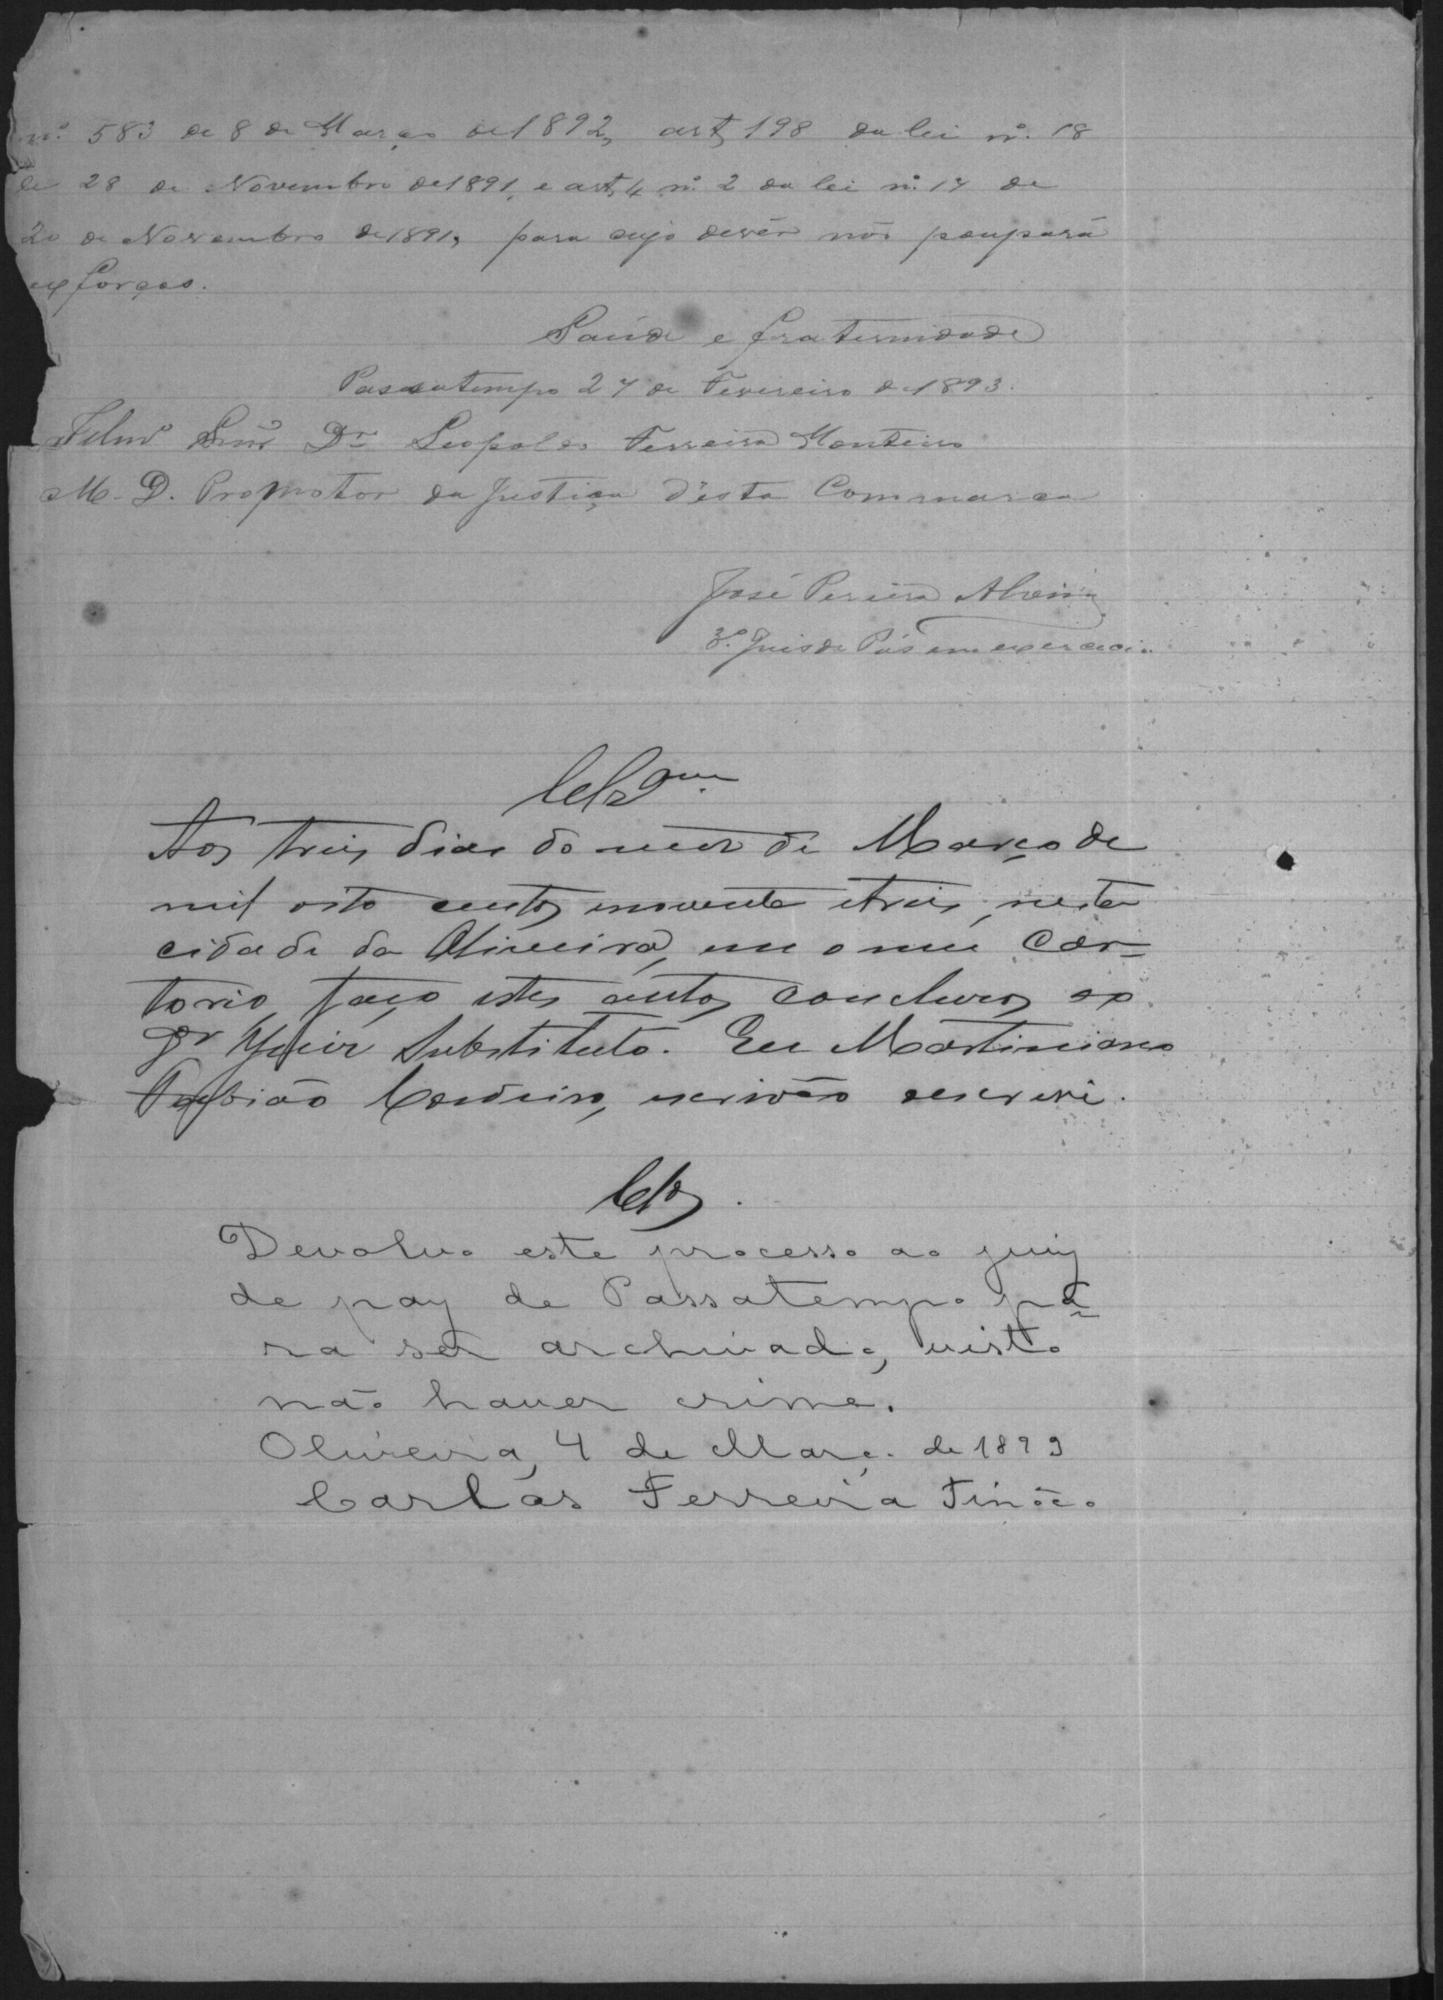 nº 583 de 8 de Março de 1892, art 198 da lei nº. 18
de 28 de Novembro de 1891, e art 4 nº 2 da lei nº 17 de
20 de Novembro de 1891, para cujo devêr não poupará
exforços.
Saúde e fraternidade
Passatempo 27 de Fevereiro de 1893.
Illmº Snr Dr Leopoldo Ferreira Monteiro
M. D. Promotor da Justiça d'esta Commarca
José Pereira
3º. Juis de Pás em exercicio
Clsam.
Aos treis dias do mez de Março de
mil oito centos enoventa etreis, nesta
cidade da Oliveira, em o meu Car-
torio, faço estes autos conclusos ao
Dr Juiz Substituto. Eu Martiniano
Cordeiro, escrivão oescrevi.
Clsos.
Devolvo este processo ao juiz
de paz de Passatempo pa-
ra ser archivado, visto
não haver crime.
Oliveira, 4 de Março de 1893
Carlos Ferreira Tinôco